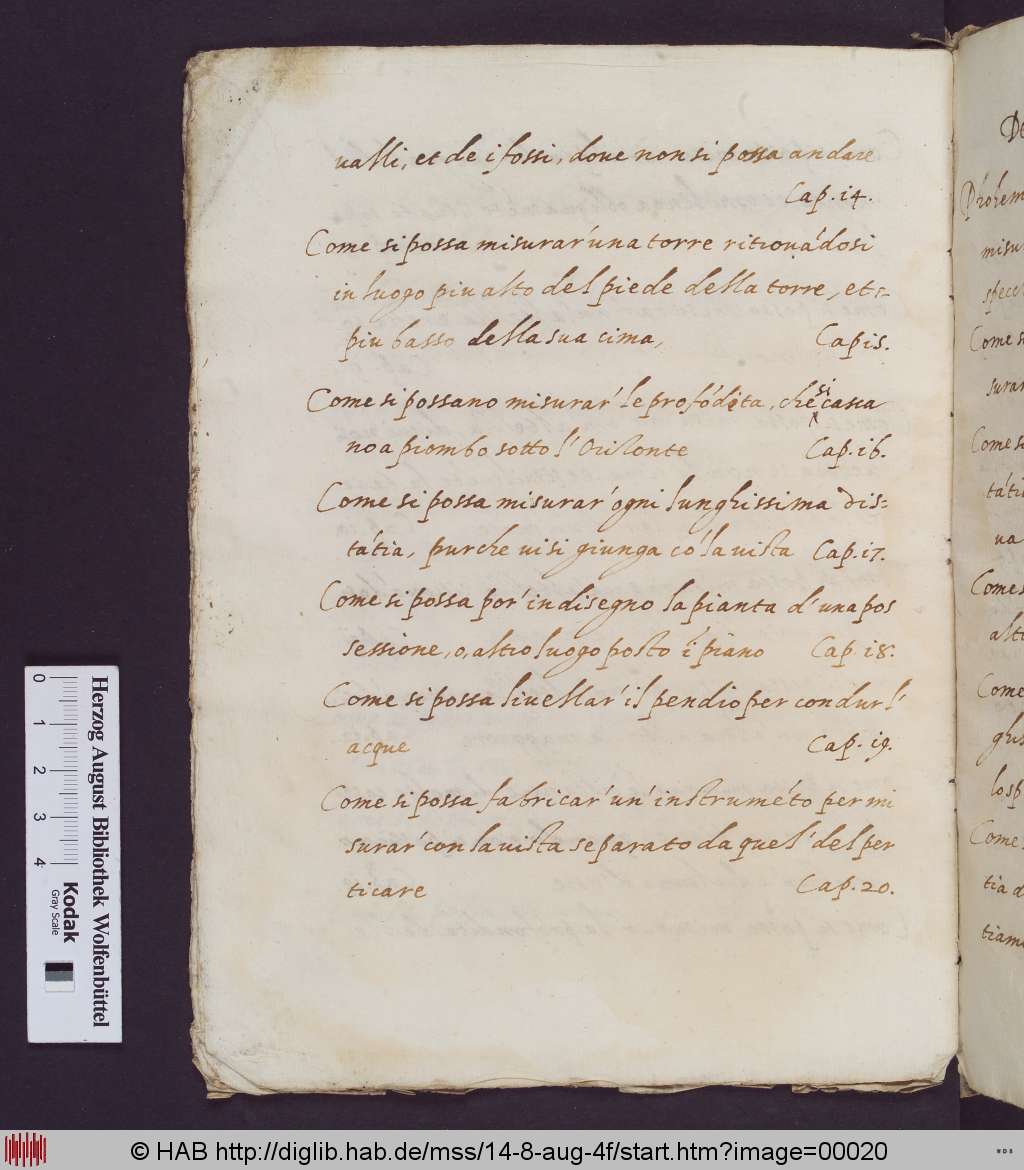 ualli, et de i fossi, doue non si possa andare
Cap. 14.
Come si possa misurar' una torre ritrouádosi
in luogo piu alto del piede della torre, et
piu basso della sua cima,
Cap 15.
Come si possano misurar' le profódita, che si casca
no a piombo sotto l' Orisonte
Cap. 16.
Come si possa misurar' ogni lunghissima dis-
tátia, purche ui si giunga có la uista
Cap. 17.
Come si possa por' in disegno la pianta d' una pos
sessione, o, altro luogo posto í piano
Cap. 18.
Come si possa liuellar' il pendio per condur l'
acque
Cap. 19.
Come si possa fabricar' un' instruméto per mi
surar' con la uista separato da quel' del per
ticare
Cap. 20.
Prohem
misu
spece
Come s
surar
Come s
táti
ua
Come s
alt
Come
lo sp
Come
tia d
tiam
0 1 2 3 4
Herzog August Bibliothek Wolfenbüttel
Kodak
Gray Scale
© HAB http://diglib.hab.de/mss/14-8-aug-4f/start.htm?image=00020